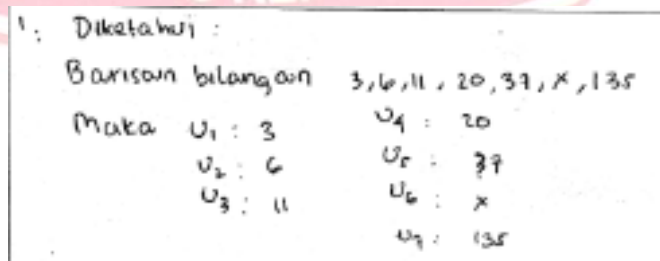 1. Diketahui :
Barisan bilangan 3, 6, 11, 20, 37, x, 135
Maka U₁ : 3 U₄ : 20
U₂ : 6 U₅ : 37
U₃ : 11 U₆ : x
U₇ : 135